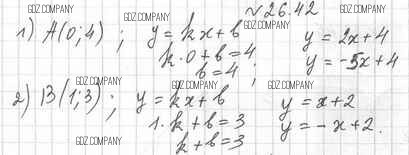 GDZ.COMPANY GDZ.COMPANY GDZ.COMPANY
№26.42
1) A(0;4); y = kx + b y = 2x+4
k·0+b=4 y = -5x+4
b=4;
GDZ.COMPANY GDZ.COMPANY GDZ.COMPANY
2) B(1;3); y = kx + b y = x+2
1·k+b=3 y = -x+2.
GDZ.COMPANY k+b=3 GDZ.COMPANY